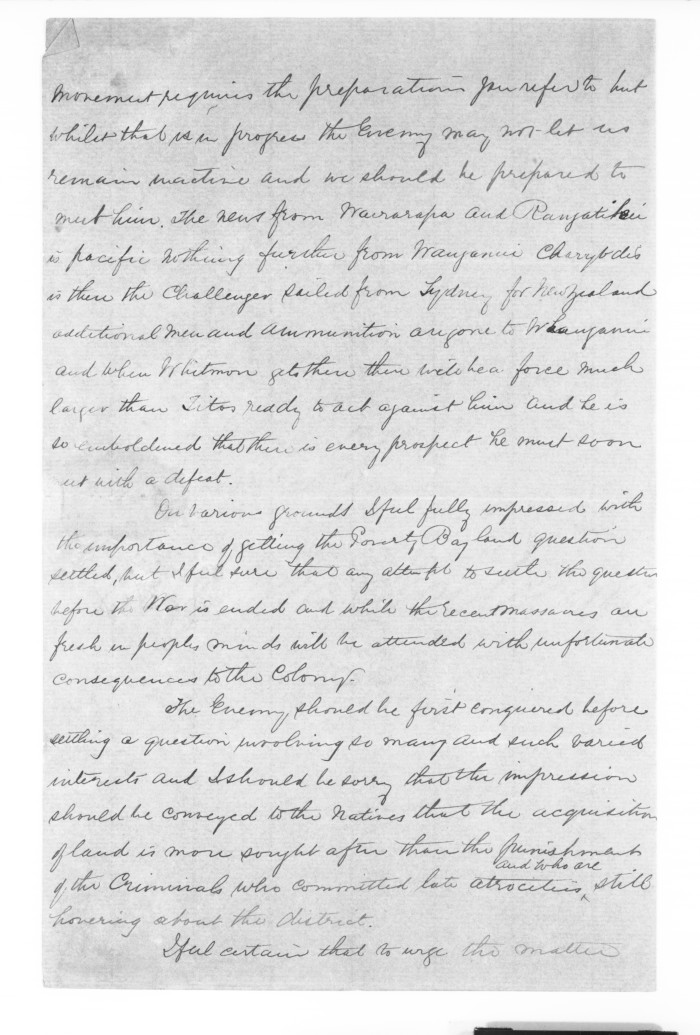 movement requires the preparations you refer to but
whilst that is in progress the Enemy may not let us
remain inactive and we should be prepared to
meet him. The news from Wairarapa and Rangatikei
is pacific nothing further from Wanganui Charybdis
is there the Challenger sailed from Sydney for New Zealand
additional men and ammunition are gone to Whanganui
and when Whitmore gets there there will be a force much
larger than Titos ready to act against him and he is
so emboldened that there is every prospect he must soon
with a defeat.
On various grounds I feel fully impressed with
the importance of getting the Poverty Bay land question
settled, but I feel sure that any attempt to settle the question
before the War is ended and while the recent massacres are
fresh in peoples minds will be attended with unfortunate
consequences to the Colony.
The Enemy should be first conquered before
settling a question involving so many and such varied
interests and I should be sorry that the impression
should be conveyed to the Natives that the acquisition
of land is more sought after than the punishment
and who are
of the Criminals who committed late atrocities, still
hovering about the district.
I feel certain that to urge the matter